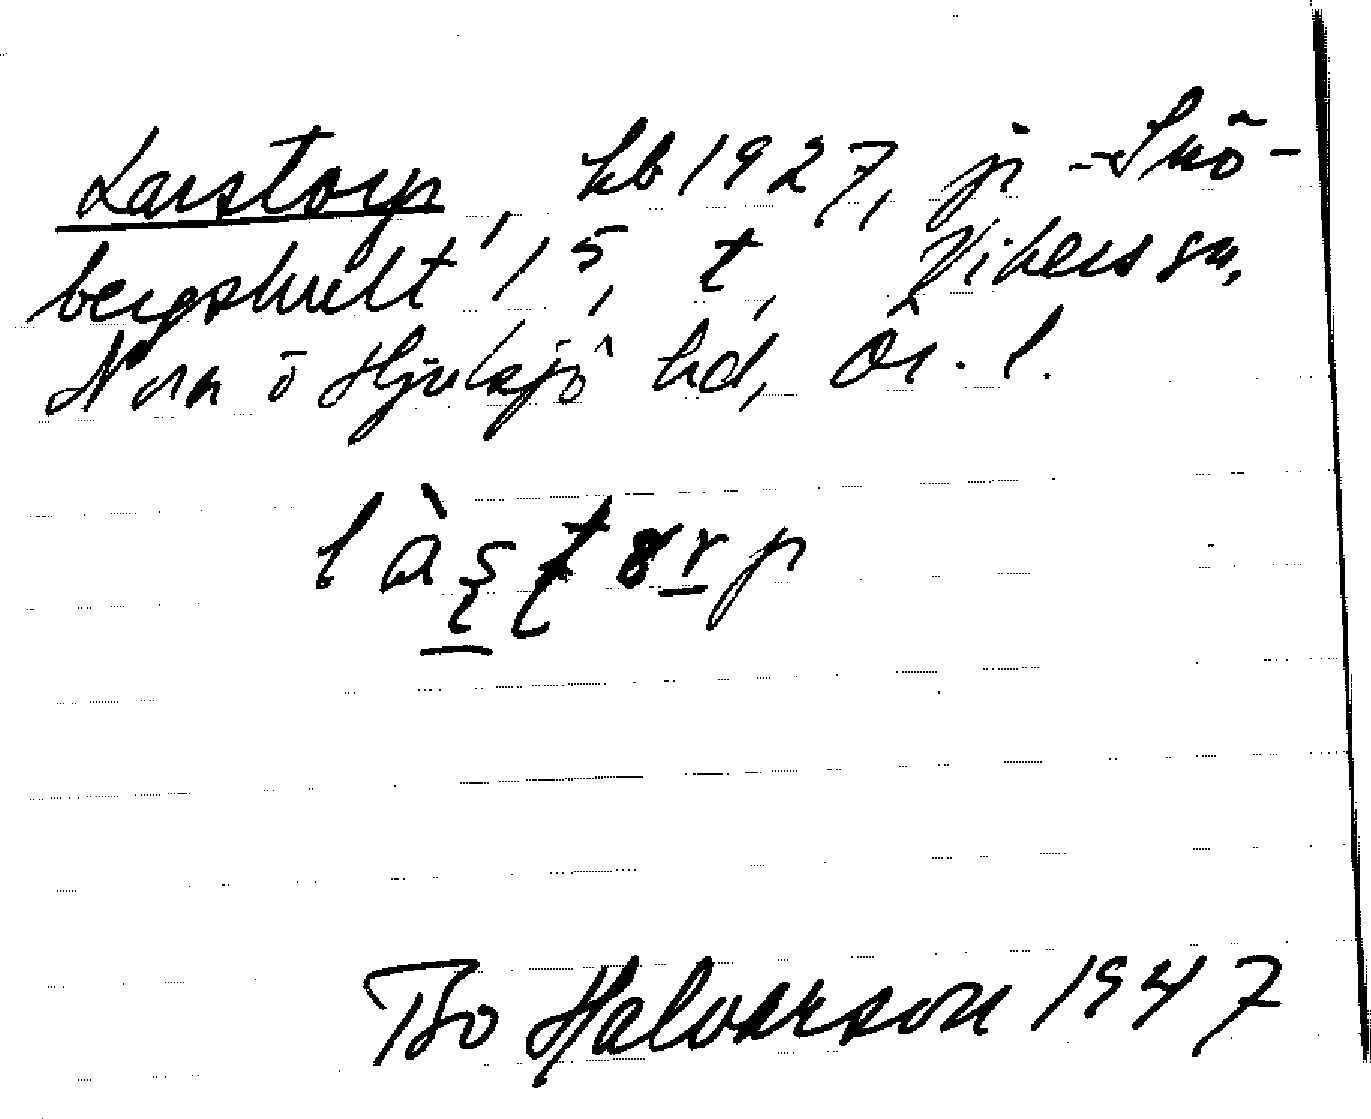 Larstorp, kb 1927, på Snö-
bergshult 15, t, Vikers sn,
Nora o Hjulsjö hd, Ör. l.
Bo Halvarson 1947